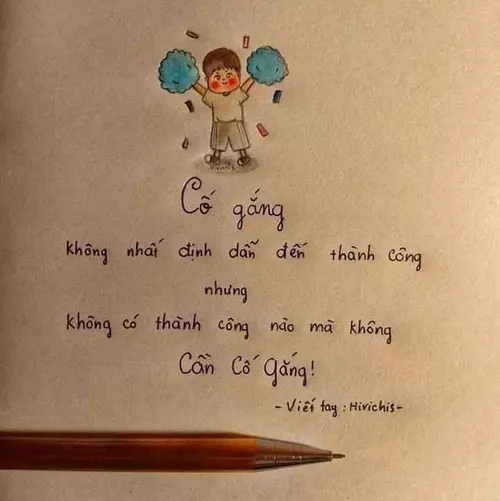 Cố gắng
không nhất định dẫn đến thành công
nhưng
không có thành công nào mà không
Cần Cố Gắng!
- Viết tay : Hirichis -